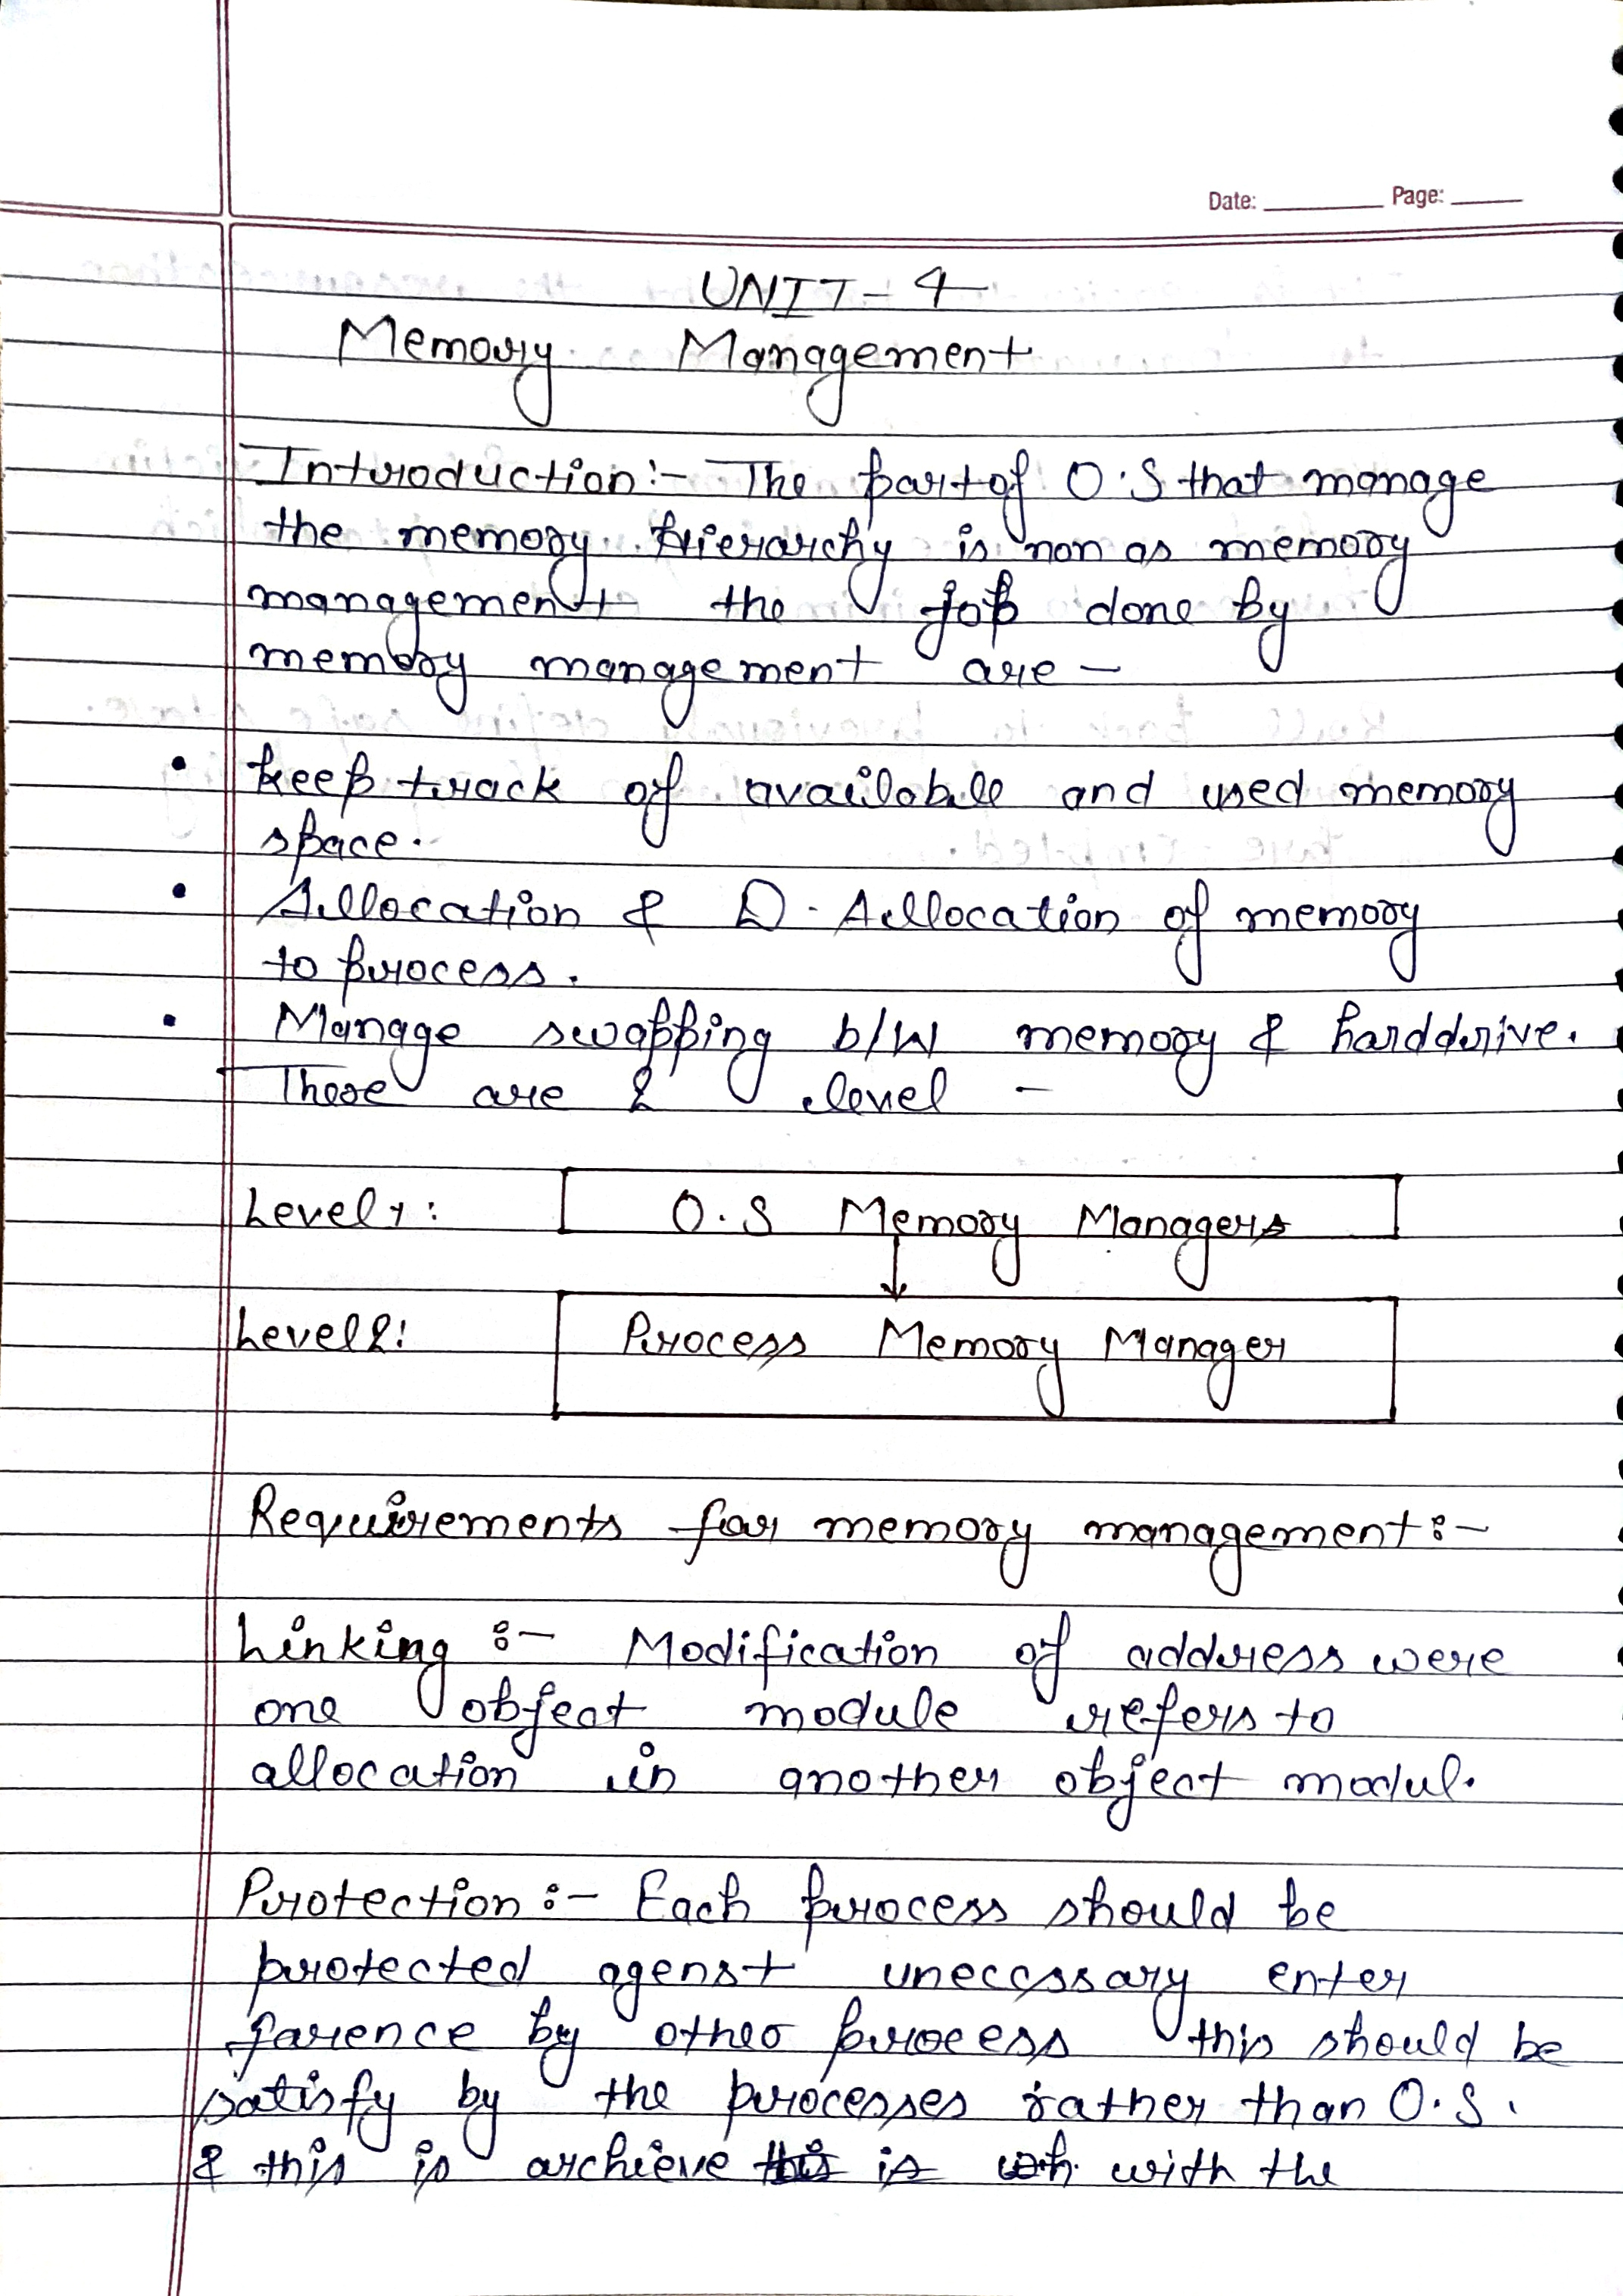 Date: Page:
UNIT-4
Memory Management
Introduction:- The part of O.S that manage
the memory hierarchy is non as memory
management the job done by
memory management are -
• keep track of available and used memory
space.
• Allocation & D-Allocation of memory
to process.
• Manage swapping b/w memory & harddrive.
These are 2 level -
Level 1: O.S Memory Managers
Level 2: Process Memory Manager
Requirements for memory management:-
Linking :- Modification of address were
one object module refers to
allocation in another object modul.
Protection :- Each process should be
protected agenst uneccssary enter
farence by other process this should be
satisfy by the processes rather than O.S.
& this is archieve this is with the